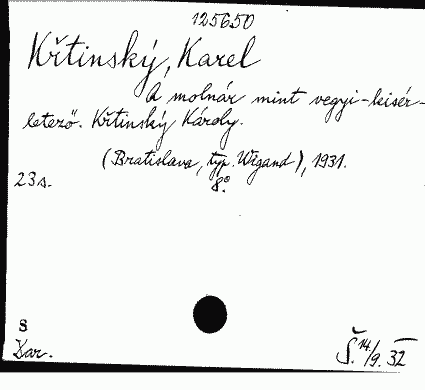 125650
Křtinský, Karel
A molnár mint vegyi-kisér-
letező. Křtinský Károly.
(Bratislava, typ. Wigand), 1931.
23 s. 8°
S
Kar.
Š. 14/9. 32